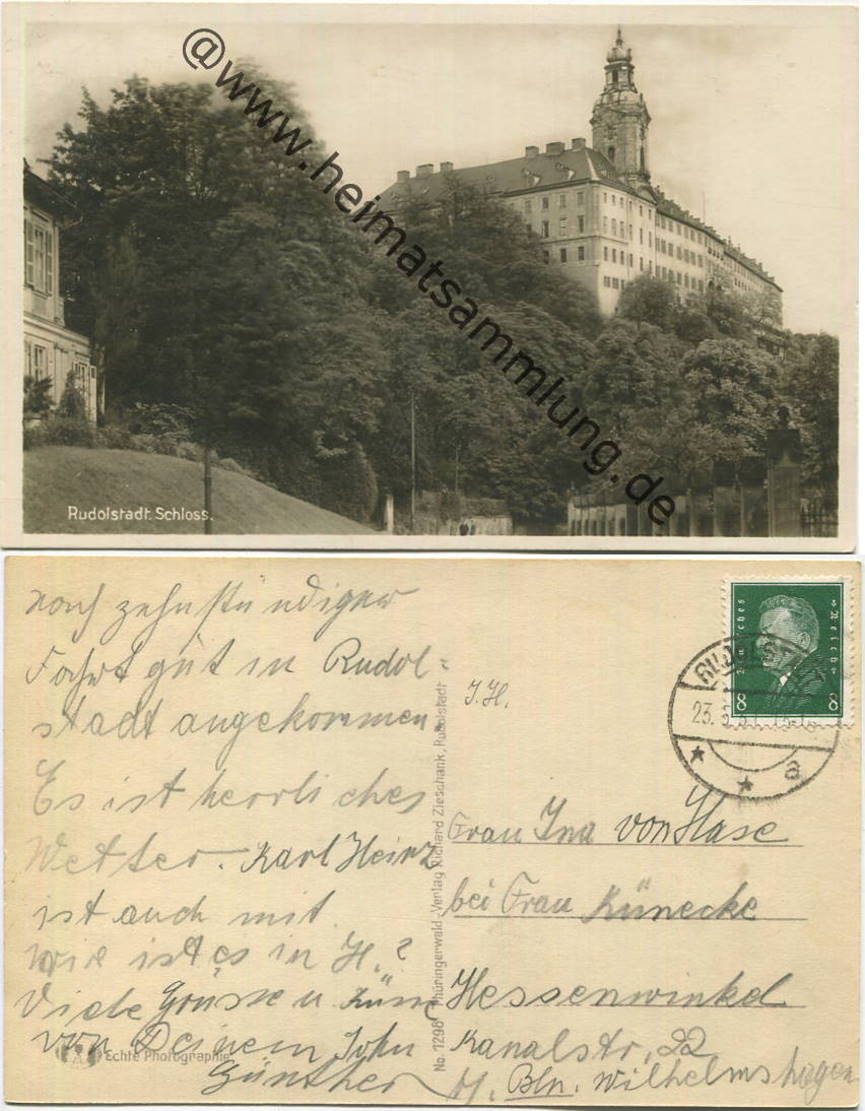 @www.heimatsammlung.de
Rudolstadt. Schloss.
noch zehnstündiger
Fahrt gut in Rudol-
stadt angekommen.
Es ist herrliches
Wetter. Karl Heinz
ist auch mit.
wie ist es in H.?
Viele Grüsse u Küsse
von Deinem John
Günther
Echte Photographie
No. 1298 Thüringerwald-Verlag Richard Zieschank, Rudolstadt
J. H.
Deutsches Reich
8 8
23.
a
Frau Ina von Hase
bei Frau Künecke
Hessenwinkel
Kanalstr. 22
Bln. Wilhelmshagen